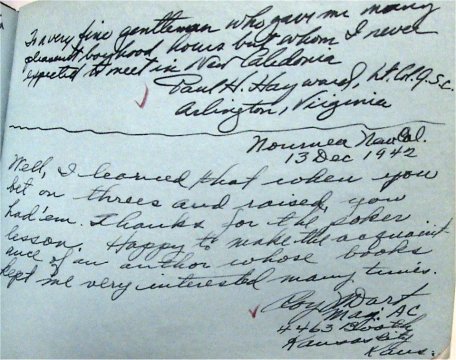 To a very fine gentleman who gave me many
pleasant boyhood hours but whom I never
expected to meet in New Caledonia
Paul H. Hayward, Lt. Col. Q.S.C.
Arlington, Virginia
Noumea New Cal.
13 Dec 1942
Well, I learned that when you
bet on threes and raised, you
had 'em. Thanks for the poker
lesson. Happy to make the acquaint-
ance of an author whose books
kept me very interested many times.
Roy Dart
Maj. AC
4463 Booth
Kansas City
Kans.